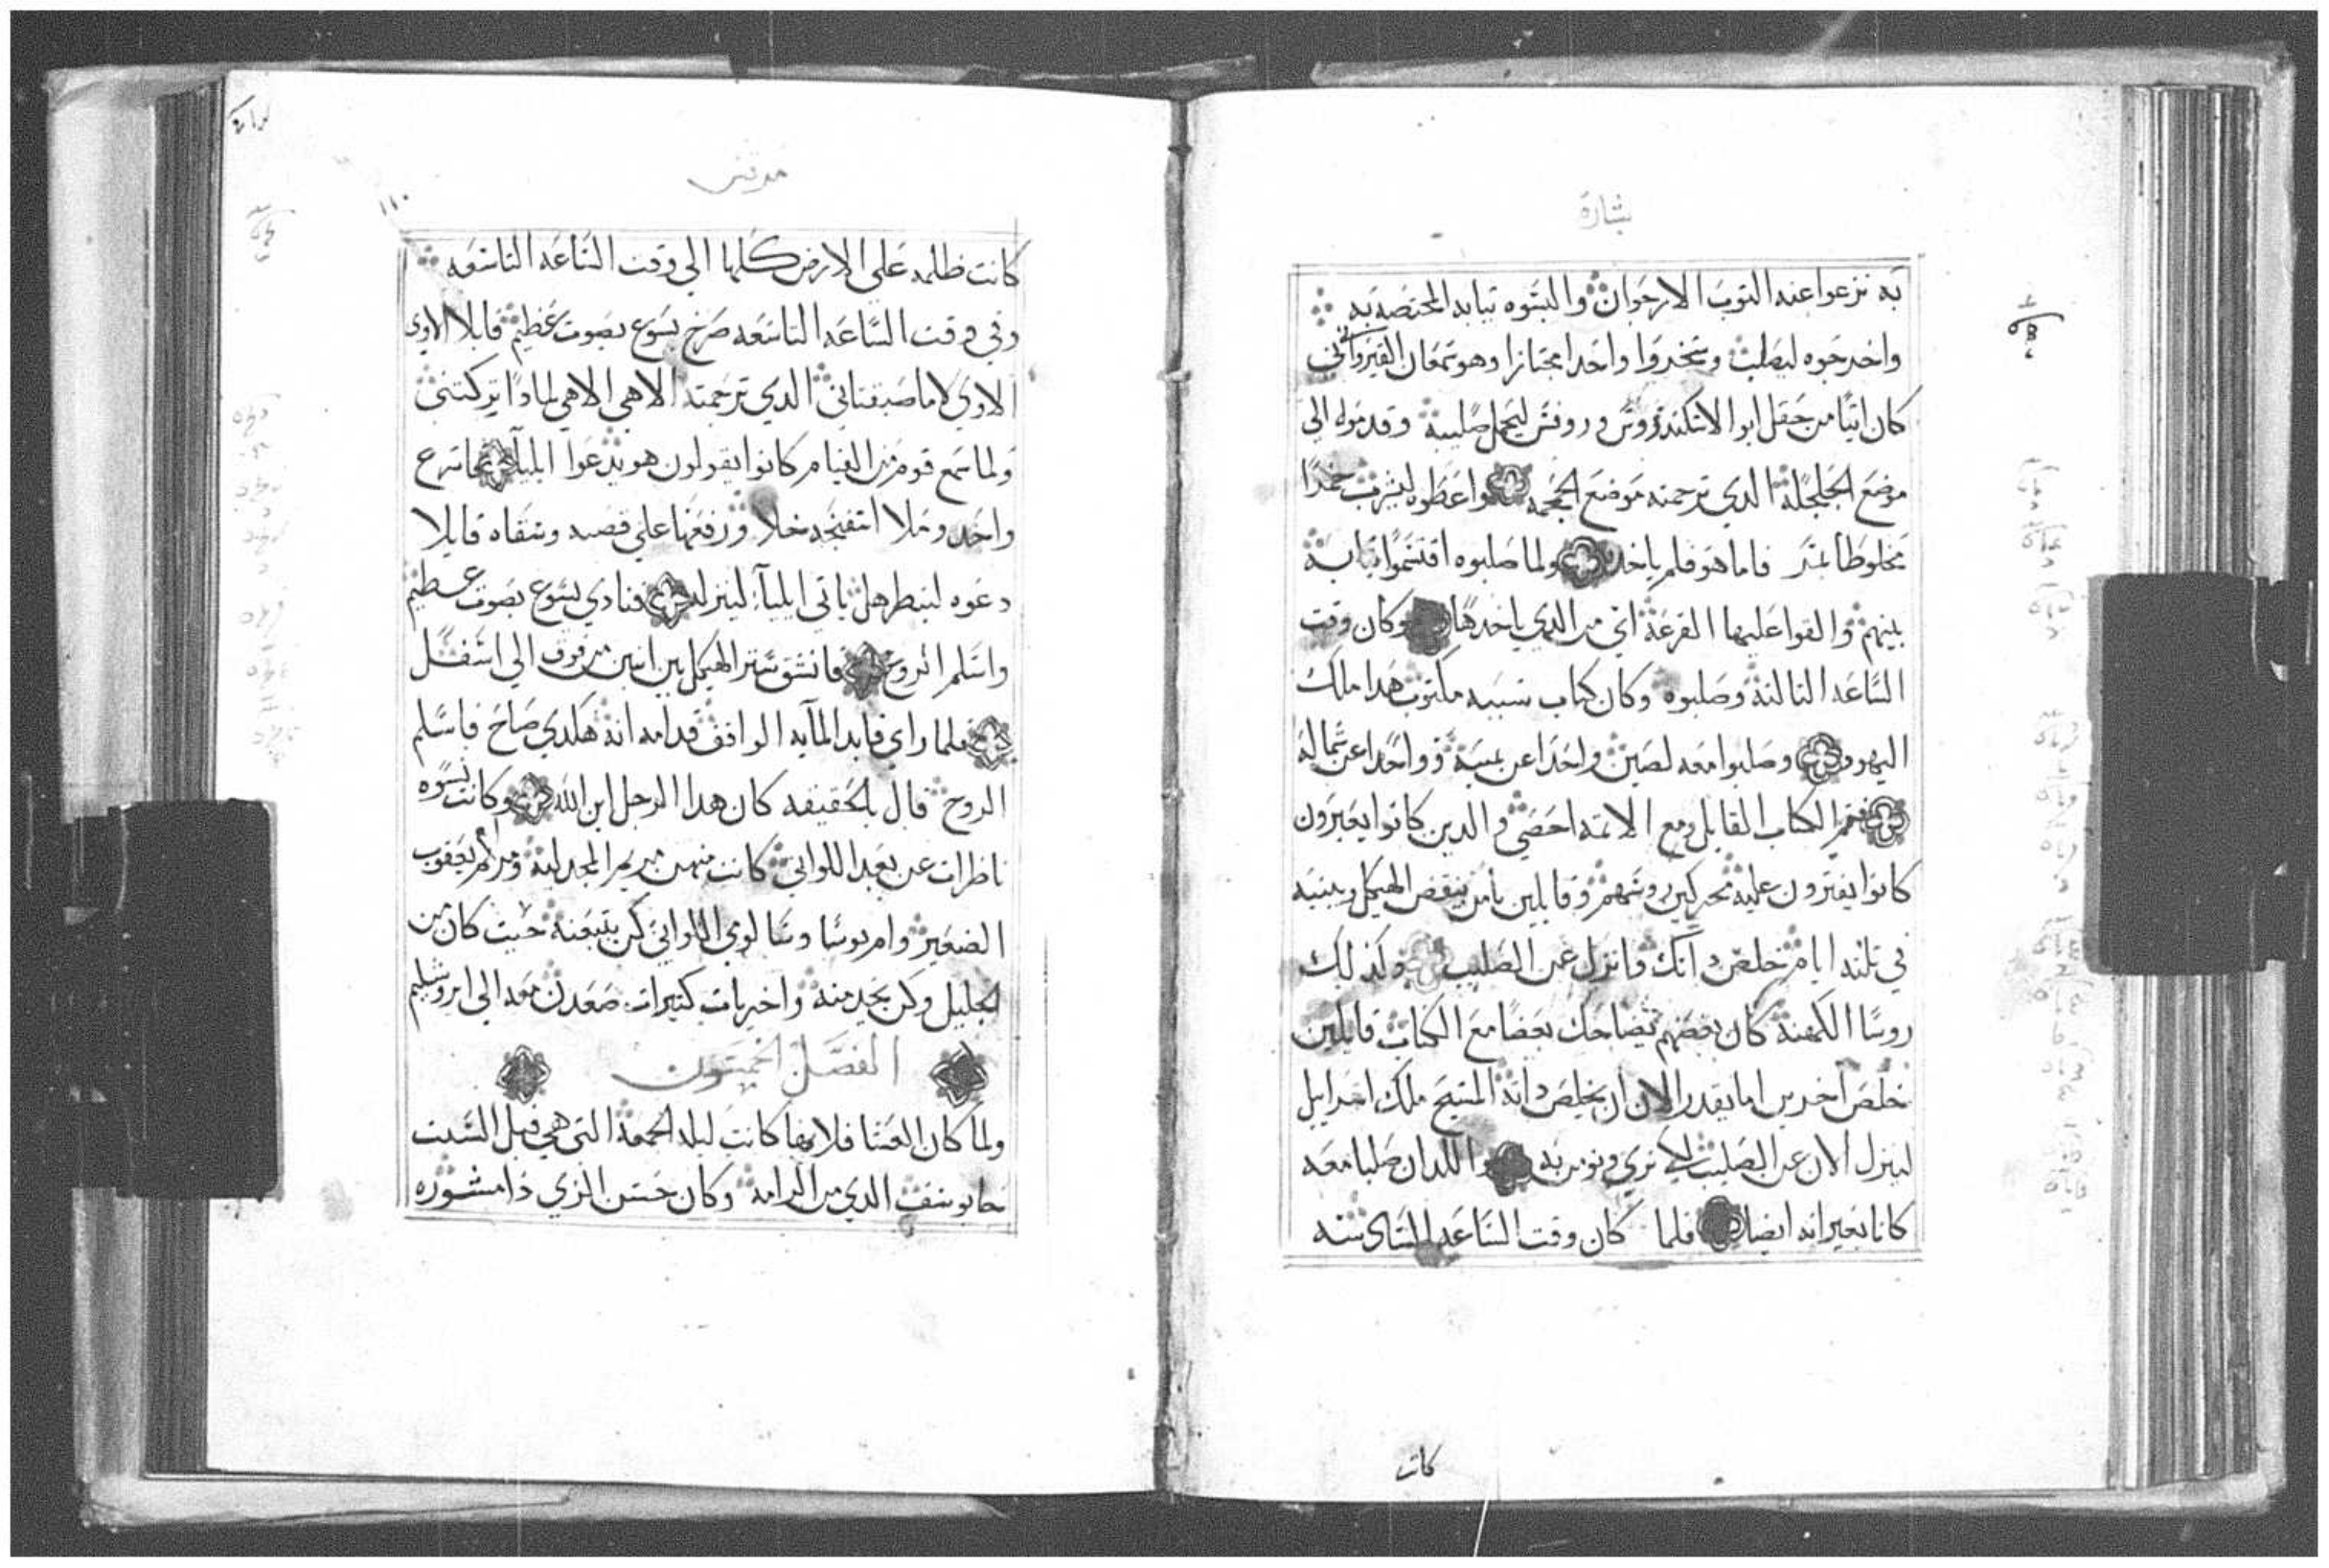 بشارة
به نزعوا عنه التوب الارجوان والبسوه تيابه المختصه به
واخرجوه ليصلب وسخروا واحدا مجتازا وهو سمعان القيرواني
كان اتيا من حقل ابو الاسكندروس وروفس ليحمل صليبه وقدموه الي
موضع الجلجله الدي ترجمته موضع الجمجمه واعطوه ليشرب خمرا
مخلوطا بمر فاما هو فلم ياخد ولما صلبوه اقتسموا تيابه
بينهم والقوا عليها القرعه اي من الدي ياخدها وكان وقت
الساعه التالته وصلبوه وكان كتاب سببه مكتوب هدا ملك
اليهود وصلبوا معه لصين واحدا عن يمينه وواحدا عن شماله
فتم الكتاب القايل ومع الاتمه احصي والدين كانوا يعبرون
كانوا يفترون عليه محركين روسهم وقايلين يا من ينقض الهيكل ويبنيه
في تلته ايام خلص داتك وانزل عن الصليب وكدلك
روسا الكهنه كان بعضهم يضاحك بعضا مع الكتاب قايلين
خلص اخرين اما يقدر الان ان يخلص داته المسيح ملك اسراييل
لينزل الان عن الصليب لكي نري ونومن به واللدان صلبا معه
كانا يعيرانه ايضا فلما كان وقت الساعه السادسه
كانت
مرقس
١١٠
كانت ظلمه علي الارض كلها الي وقت الساعه التاسعه
وفي وقت الساعه التاسعه صرخ يسوع بصوت عظيم قايلا الاوي
الاوي لاما صبقتاني الدي ترجمته الاهي الاهي لمادا تركتني
ولما سمع قوم من القيام كانوا يقولون هو يدعوا ايليا فاسرع
واحد وملا اسفنجه خلا ورفعها علي قصبه وسقاه قايلا
دعوه لننظر هل ياتي ايليا لينزله فنادي يسوع بصوت عظيم
واسلم الروح فانشق ستر الهيكل بين اتنين من فوق الي اسفل
فلما راي قايد المايه الواقف قدامه انه هكدي صاح فاسلم
الروح قال بالحقيقه كان هدا الرجل ابن الله وكانت نسوه
ناظرات عن بعد اللواتي كانت منهن مريم المجدليه ومريم ام يعقوب
الصغير وام يوسا وسالومي اللواتي كن يتبعنه حيت كان من
الجليل وكن يخدمنه واخريات كتيرات صعدن معه الي ايروشليم
الفصل الخمسون
ولما كان العشا فلانها كانت ليله الجمعه التي هي قبل السبت
جا يوسف الدي من الرامه وكان حسن الزي دا مشوره